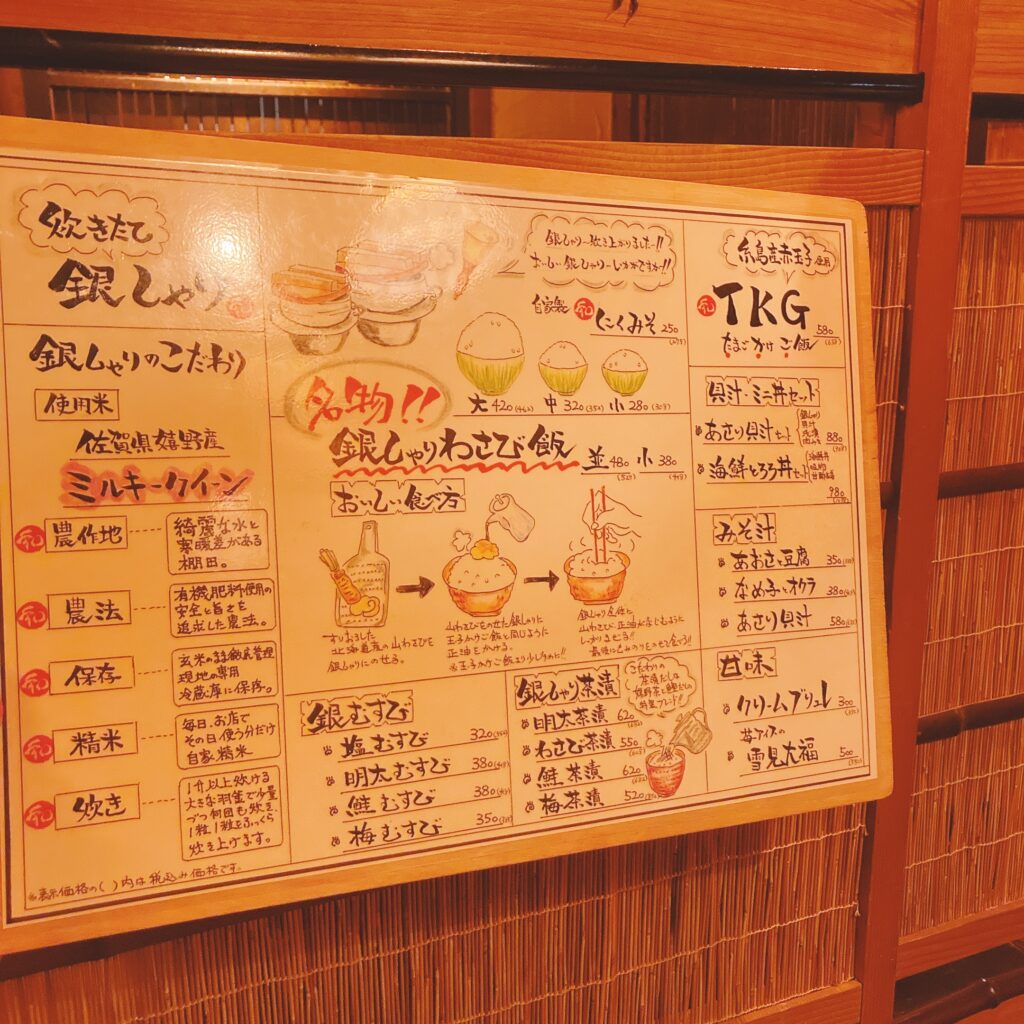 炊きたて
銀しゃり
銀しゃりのこだわり
使用米
佐賀県嬉野産
ミルキークイーン
農作地
綺麗な水と
寒暖差がある
棚田。
農法
有機肥料使用の
安全と旨さを
追求した農法。
保存
玄米の
現地の専用
冷蔵庫に保存。
精米
毎日、お店で
その日使う分だけ
自家精米
炊き
1升以上炊ける
大きな羽釜で少量
づつ何回も炊き、
1粒、1粒をふっくら
炊き上げます。
※表示価格の( )内は税込み価格です。
銀しゃり〜炊き上がりました〜!!
おいしい銀しゃり〜いかがですか!!
自家製 にくみそ 250
大 420(462) 中 320(352) 小 280(308)
名物!!
銀しゃりわさび飯 並 480 小 380
(528)
おいしい食べ方
すりおろした
北海道産の山わさびを
銀しゃりにのせる。
山わさびをのせた銀しゃりに
玉子かけご飯と同じように
正油をかける。
※玉子かけご飯より少しタめに!!
銀しゃり全体に
山わさび、正油がまじるように
しっかりまぜる!!
最後に
銀むすび
塩むすび 320(352)
明太むすび 380(418)
鮭むすび 380(418)
梅むすび 350(385)
銀しゃり茶漬
こだわりの
茶漬だしは
嬉野茶と鰹だしの
特製ブレンド!!
明太茶漬 620
わさび茶漬 550
鮭茶漬 620(682)
梅茶漬 520
糸島産赤玉子使用
TKG 580
(638)
たまごかけご飯
貝汁・ミニ丼セット
あさり貝汁セット 880
海鮮とろろ丼セット
980
みそ汁
あおさと豆腐 350
なめ子とオクラ 380
あさり貝汁 580
甘味
クリームブリュレ 300
苺アイスの
雪見大福 500